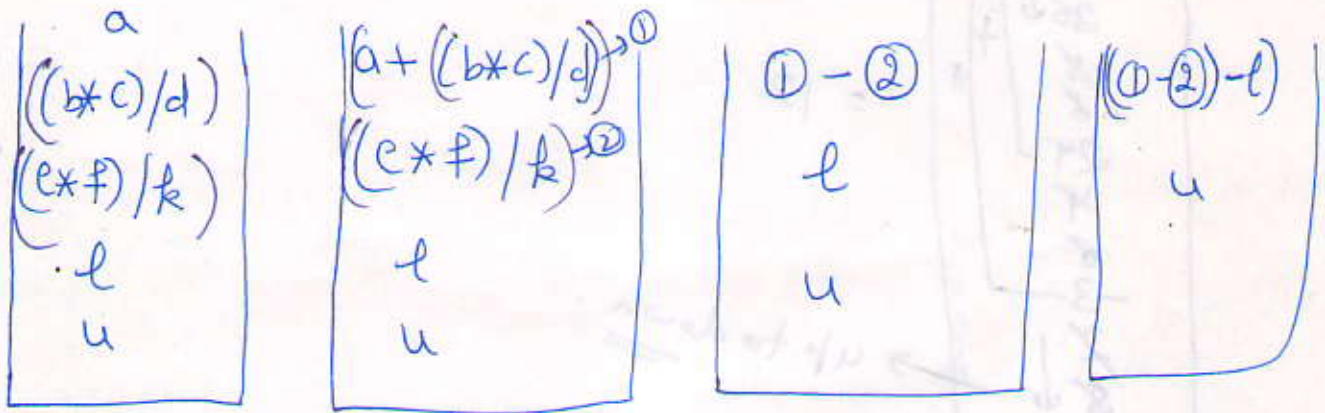 a
((b*c)/d)
((e*f)/k)
l
u
(a+((b*c)/d)) → ①
((e*f)/k) → ②
l
u
① - ②
l
u
((①-②)-l)
u